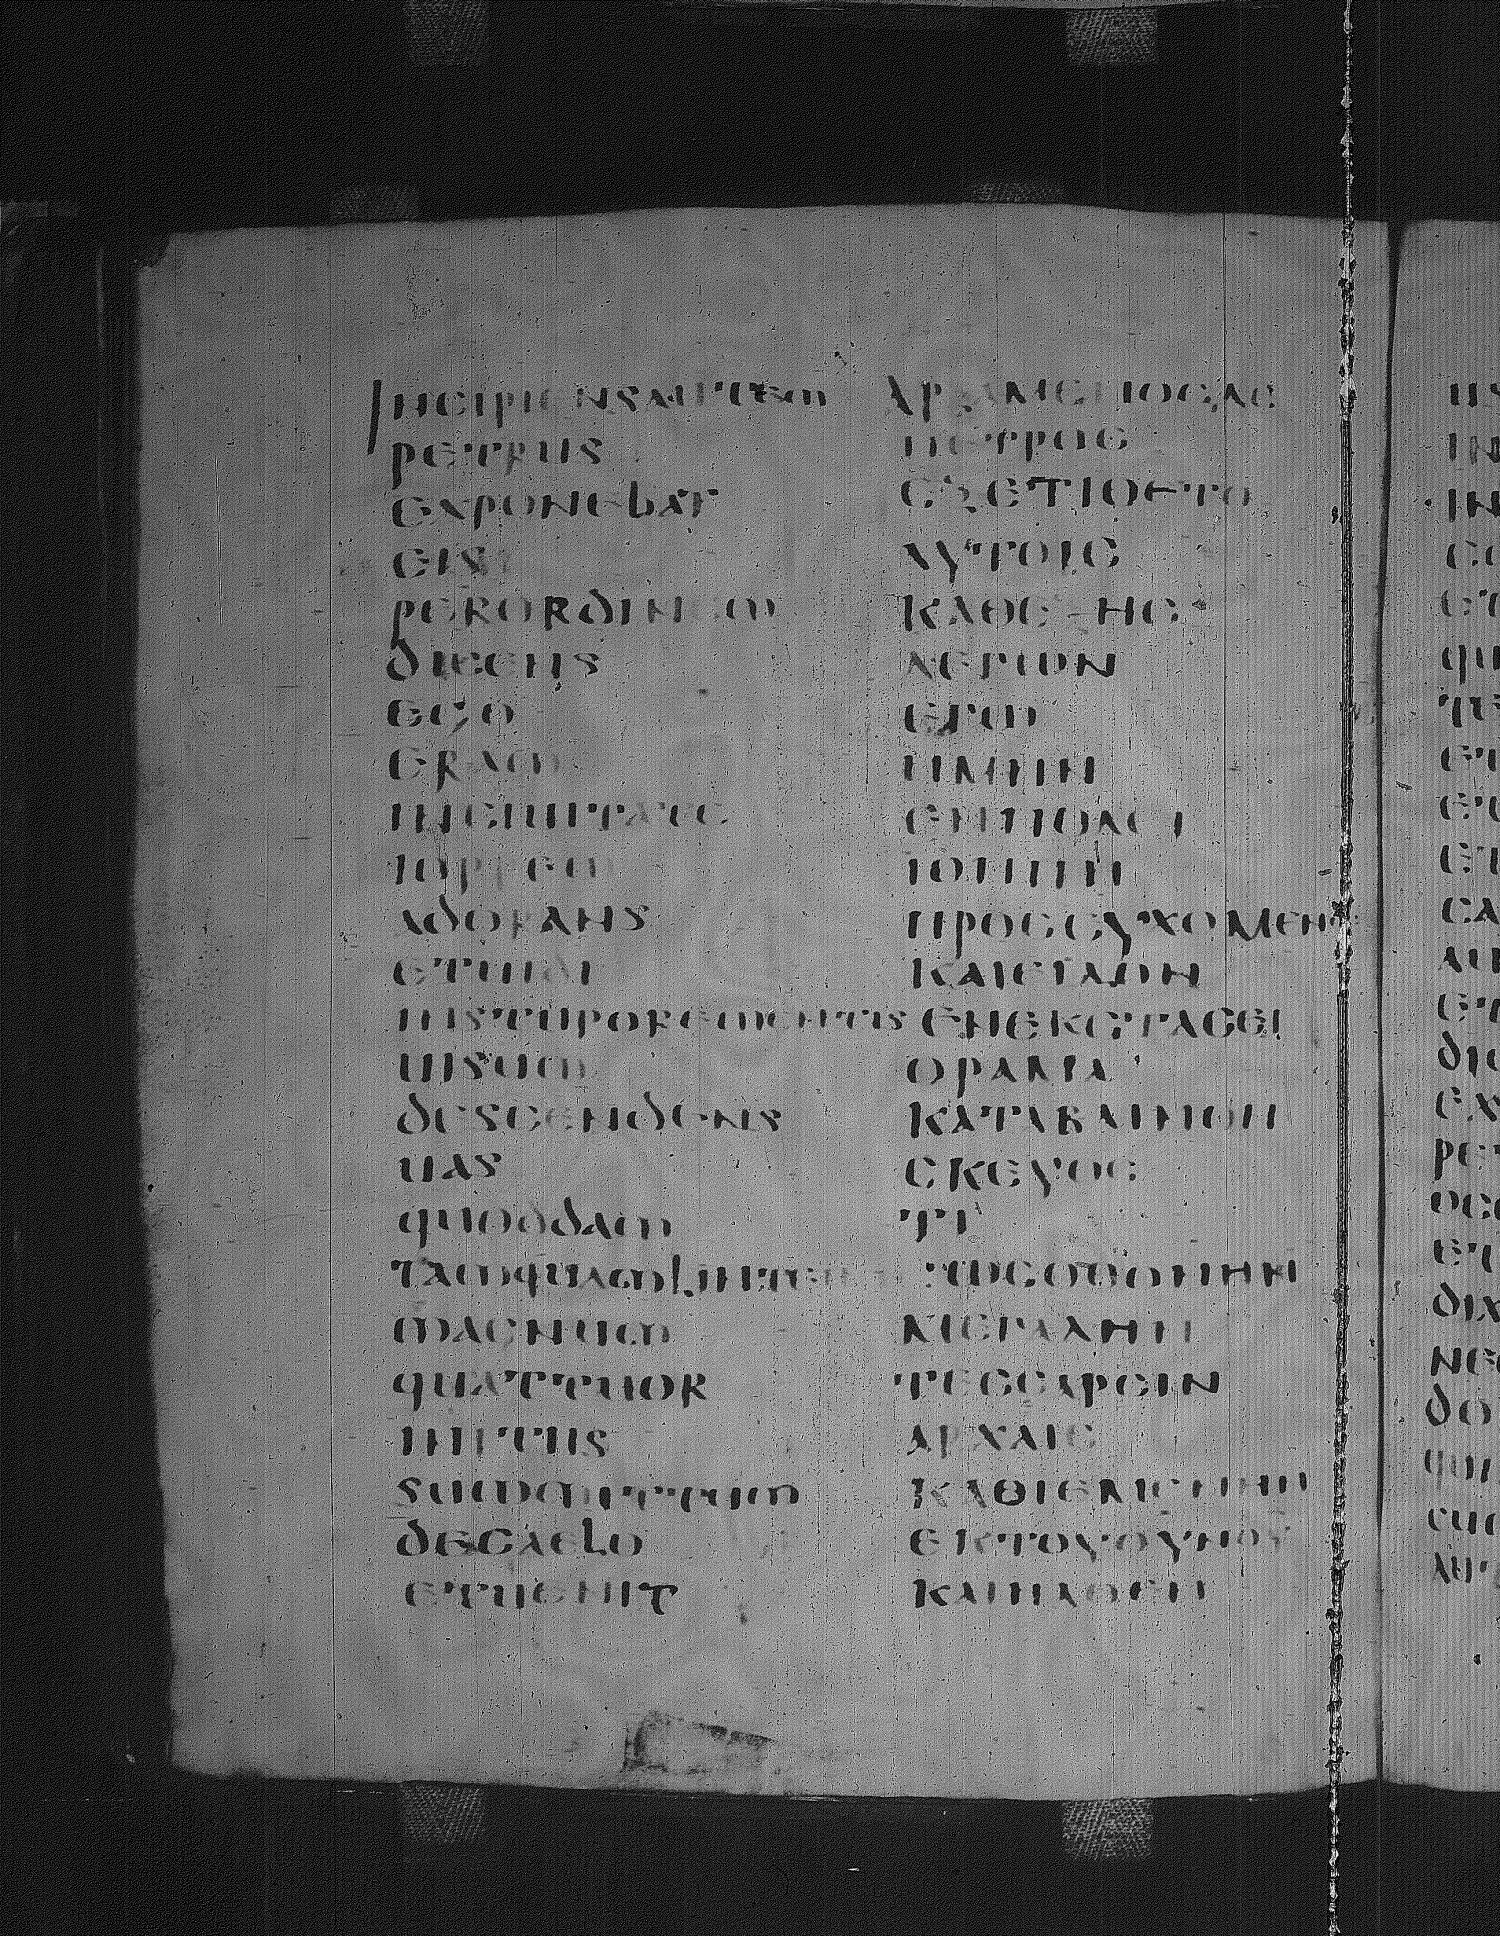 INCIPIENSAUTEM
PETRUS
EXPONEBAT
EIS
PERORDINEM
DICENS
EGO
ERAM
INCIUITATE
IOPPEM
ADORANS
ETUIDI
INSTUPOREMENTIS
UISUM
DESCENDENS
UAS
QUODDAM
TAMQUAMLINTEUM
MAGNUM
QUATTUOR
INITIIS
SUMMITTUM
DECAELO
ETUENIT
ΑΡΞΑΜΕΝΟϹΔΕ
ΠΕΤΡΟϹ
ΕΞΕΤΙΘΕΤΟ
ΑΥΤΟΙϹ
ΚΑΘΕΞΗϹ
ΛΕΓΩΝ
ΕΓΩ
ΗΜΗΝ
ΕΝΠΟΛΕΙ
ΙΟΠΠΗ
ΠΡΟϹΕΥΧΟΜΕΝΟϹ
ΚΑΙΕΙΔΟΝ
ΕΝΕΚϹΤΑϹΕΙ
ΟΡΑΜΑ
ΚΑΤΑΒΑΙΝΟΝ
ϹΚΕΥΟϹ
ΤΙ
ΩϹΟΘΟΝΗΝ
ΜΕΓΑΛΗΝ
ΤΕϹϹΑΡϹΙΝ
ΑΡΧΑΙϹ
ΚΑΘΙΕΜΕΝΗΝ
ΕΚΤΟΥΟΥΝΟΥ
ΚΑΙΗΛΘΕΝ